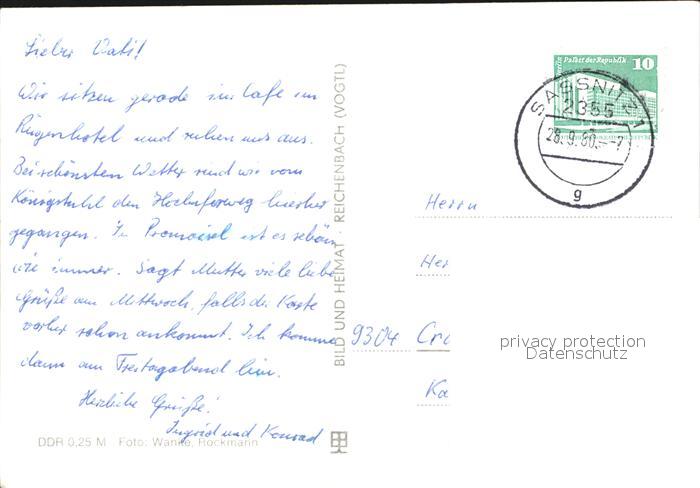 Lieber Vati!
Wir sitzen gerade im Cafe im
Rügenhotel und ruhen uns aus.
Bei schönstem Wetter sind wir vom
Königstuhl den Hochuferweg hierher
gegangen. In Promoisel ist es schön
wie immer. Sagt Mutter viele liebe
Grüße am Mittwoch, falls die Karte
vorher schon ankommt. Ich komme
dann am Freitagabend hin.
Herzliche Grüße!
Ingrid und Konrad
DDR 0,25 M Foto: Wanke, Rockmann
BILD UND HEIMAT REICHENBACH (VOGTL)
Berlin Palast der Republik
10
SASSNITZ 1
2355
28.9.80.-7
g
Herrn
Her
9304 Cr
Ka
privacy protection
Datenschutz